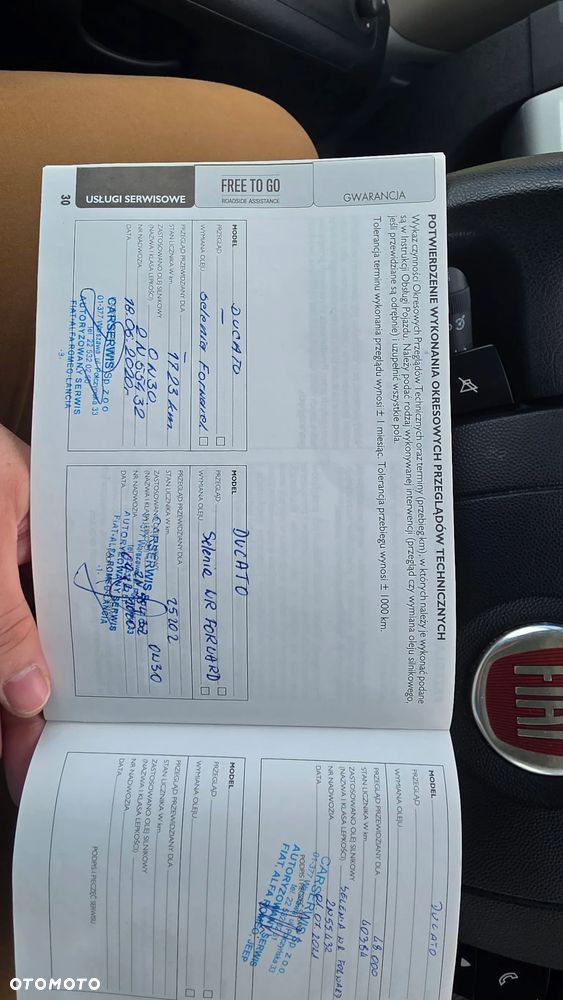 30
USŁUGI SERWISOWE
FREE TO GO
ROADSIDE ASSISTANCE
GWARANCJA
POTWIERDZENIE WYKONANIA OKRESOWYCH PRZEGLĄDÓW TECHNICZNYCH
Wykaz czynności Okresowych Przeglądów Technicznych oraz terminy (przebieg km), w których należy je wykonać podane
są w Instrukcji Obsługi Pojazdu. Należy podać rodzaj wykonywanej interwencji (przegląd czy wymiana oleju silnikowego,
jeśli przewidziane są odrębnie) i uzupełnić wszystkie pola.
Tolerancja terminu wykonania przeglądu wynosi ± 1 miesiąc. Tolerancja przebiegu wynosi ± 1000 km.
MODEL DUCATO
PRZEGLĄD —
WYMIANA OLEJU Selenia Forward
PRZEGLĄD PRZEWIDZIANY DLA —
STAN LICZNIKA W km 1723 km
ZASTOSOWANO OLEJ SILNIKOWY
(NAZWA I KLASA LEPKOŚCI) 0W30
NR NADWOZIA 2N55432
DATA 18.06.2020
CARSERWIS Sp. z o.o.
01-377 Warszawa, ul. Połczyńska 33
tel. 22 532 00
AUTORYZOWANY SERWIS
FIAT-ALFA ROMEO-LANCIA
-9-
MODEL DUCATO
PRZEGLĄD
WYMIANA OLEJU Selenia WR FORWARD
PRZEGLĄD PRZEWIDZIANY DLA
STAN LICZNIKA W km 25202
ZASTOSOWANO OLEJ SILNIKOWY
(NAZWA I KLASA LEPKOŚCI) 0W30
NR NADWOZIA
DATA
CARSERWIS
AUTORYZOWANY SERWIS
FIAT-ALFA ROMEO-LANCIA
-1-
MODEL DUCATO
PRZEGLĄD
WYMIANA OLEJU
PRZEGLĄD PRZEWIDZIANY DLA 48 000
STAN LICZNIKA W km 40384
ZASTOSOWANO OLEJ SILNIKOWY
(NAZWA I KLASA LEPKOŚCI) SELENIA WR FORWARD
NR NADWOZIA 2N55432
DATA 07.2021
CARSERWIS Sp. z o.o.
AUTORYZOWANY SERWIS
FIAT, ALFA JEEP
MODEL
PRZEGLĄD
WYMIANA OLEJU
PRZEGLĄD PRZEWIDZIANY DLA
STAN LICZNIKA W km
ZASTOSOWANO OLEJ SILNIKOWY
(NAZWA I KLASA LEPKOŚCI)
NR NADWOZIA
DATA
PODPIS I PIECZĘĆ SERWISU
FIAT
OTOMOTO